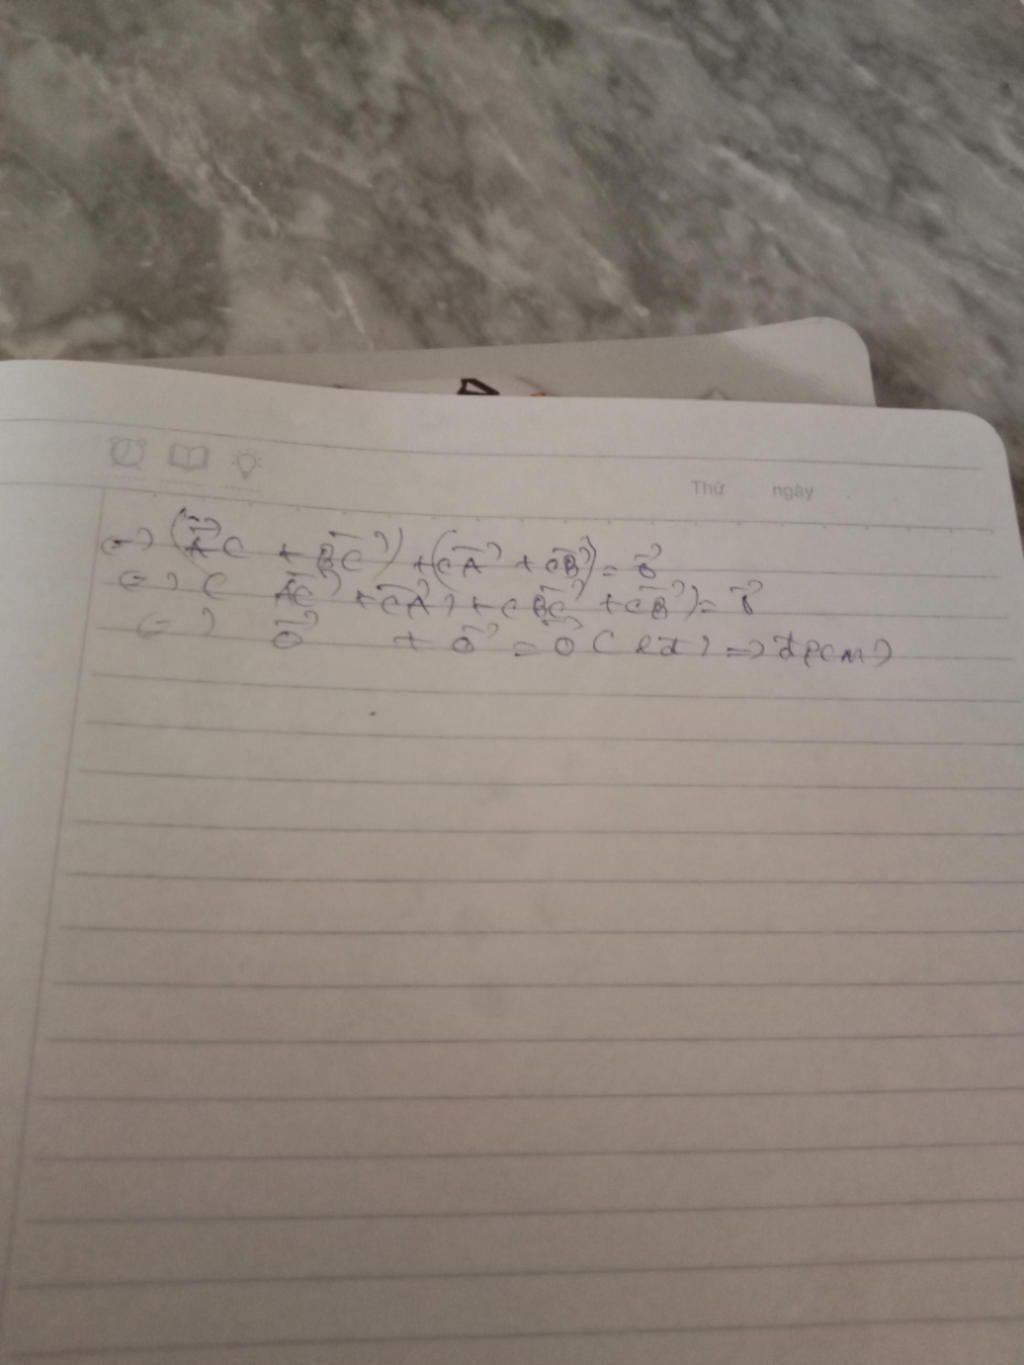 Thứ ngày
<=> (AC⃗ + BC⃗) + (CA⃗ + CB⃗) = 0⃗
<=> (AC⃗ + CA⃗) + (BC⃗ + CB⃗) = 0⃗
<=> 0⃗ + 0⃗ = 0⃗ (lđ) => đpcm)